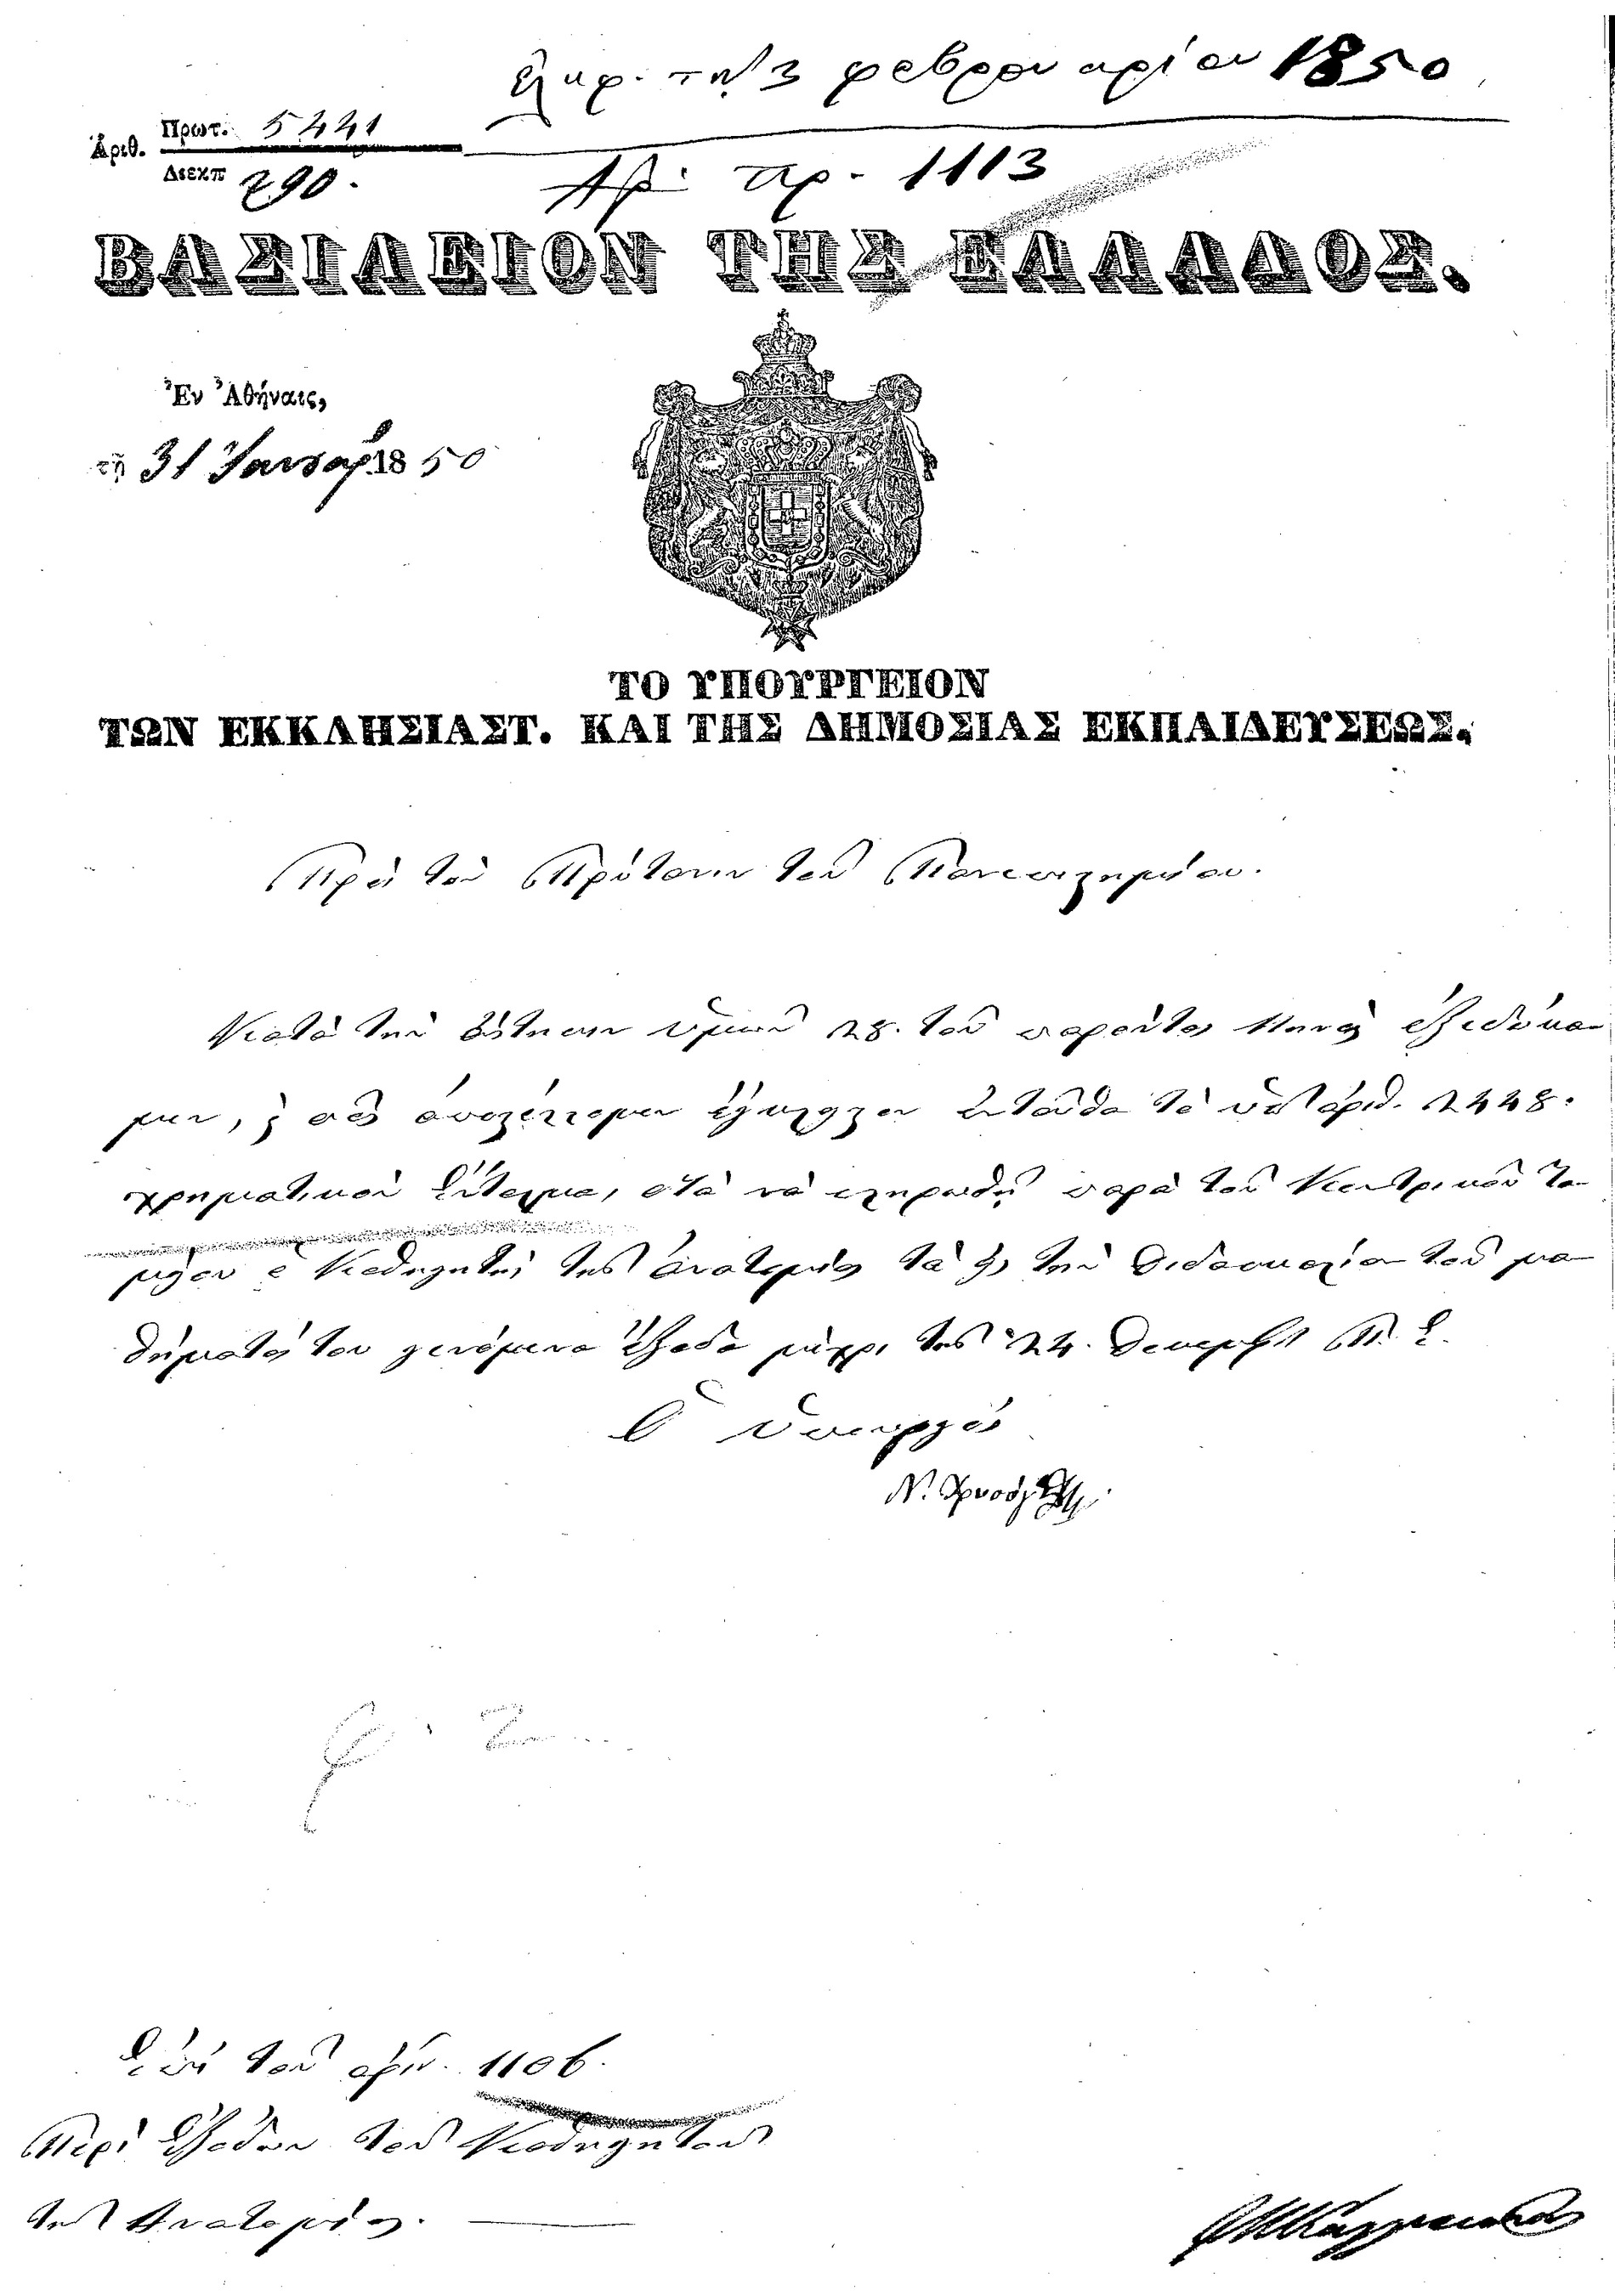 ἐλήφ. τὴν 3 φεβρουαρίου 1850
Ἀριθ. Πρωτ. 5441
Διεκπ 290.
Ἀρ. πρ. 1113
ΒΑΣΙΛΕΙΟΝ ΤΗΣ ΕΛΛΑΔΟΣ.
Ἐν Ἀθήναις,
τῇ 31 Ἰανουαρ. 1850
ΤΟ ΥΠΟΥΡΓΕΙΟΝ
ΤΩΝ ΕΚΚΛΗΣΙΑΣΤ. ΚΑΙ ΤΗΣ ΔΗΜΟΣΙΑΣ ΕΚΠΑΙΔΕΥΣΕΩΣ.
Πρὸς τὸν Πρύτανιν τοῦ Πανεπιστημίου.
Κατὰ τὴν αἴτησιν ὑμῶν 28. τοῦ παρόντος μηνὸς ἐξεδώκα-
μεν, καὶ σᾶς ἐντεῦθα τὸ ὑπ' ἀριθ. 2448.
χρηματικὸν ἔνταλμα, διὰ νὰ πληρωθῇ παρὰ τοῦ Κεντρικοῦ Τα-
μείου ὁ Καθηγητὴς τῆς ἀνατομίας τὰ διὰ τὴν διδασκαλίαν τοῦ μα-
θήματός του γενόμενα ἔξοδα μέχρι τῆς 24. Δεκεμβρ. π. ἔ.
Ὁ Ὑπουργὸς
Ν. Χρυσόγελος
ἐπὶ τοῦ ἀριθ. 1106.
Περὶ ἐξόδων τοῦ Καθηγητοῦ
τῆς Ἀνατομίας.